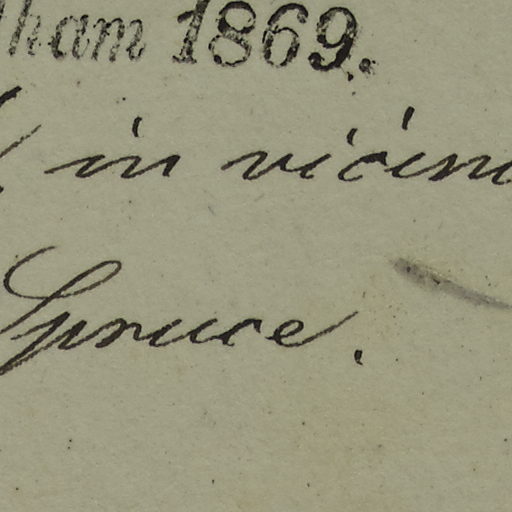 lham 1869.
in vicin
Spruce.